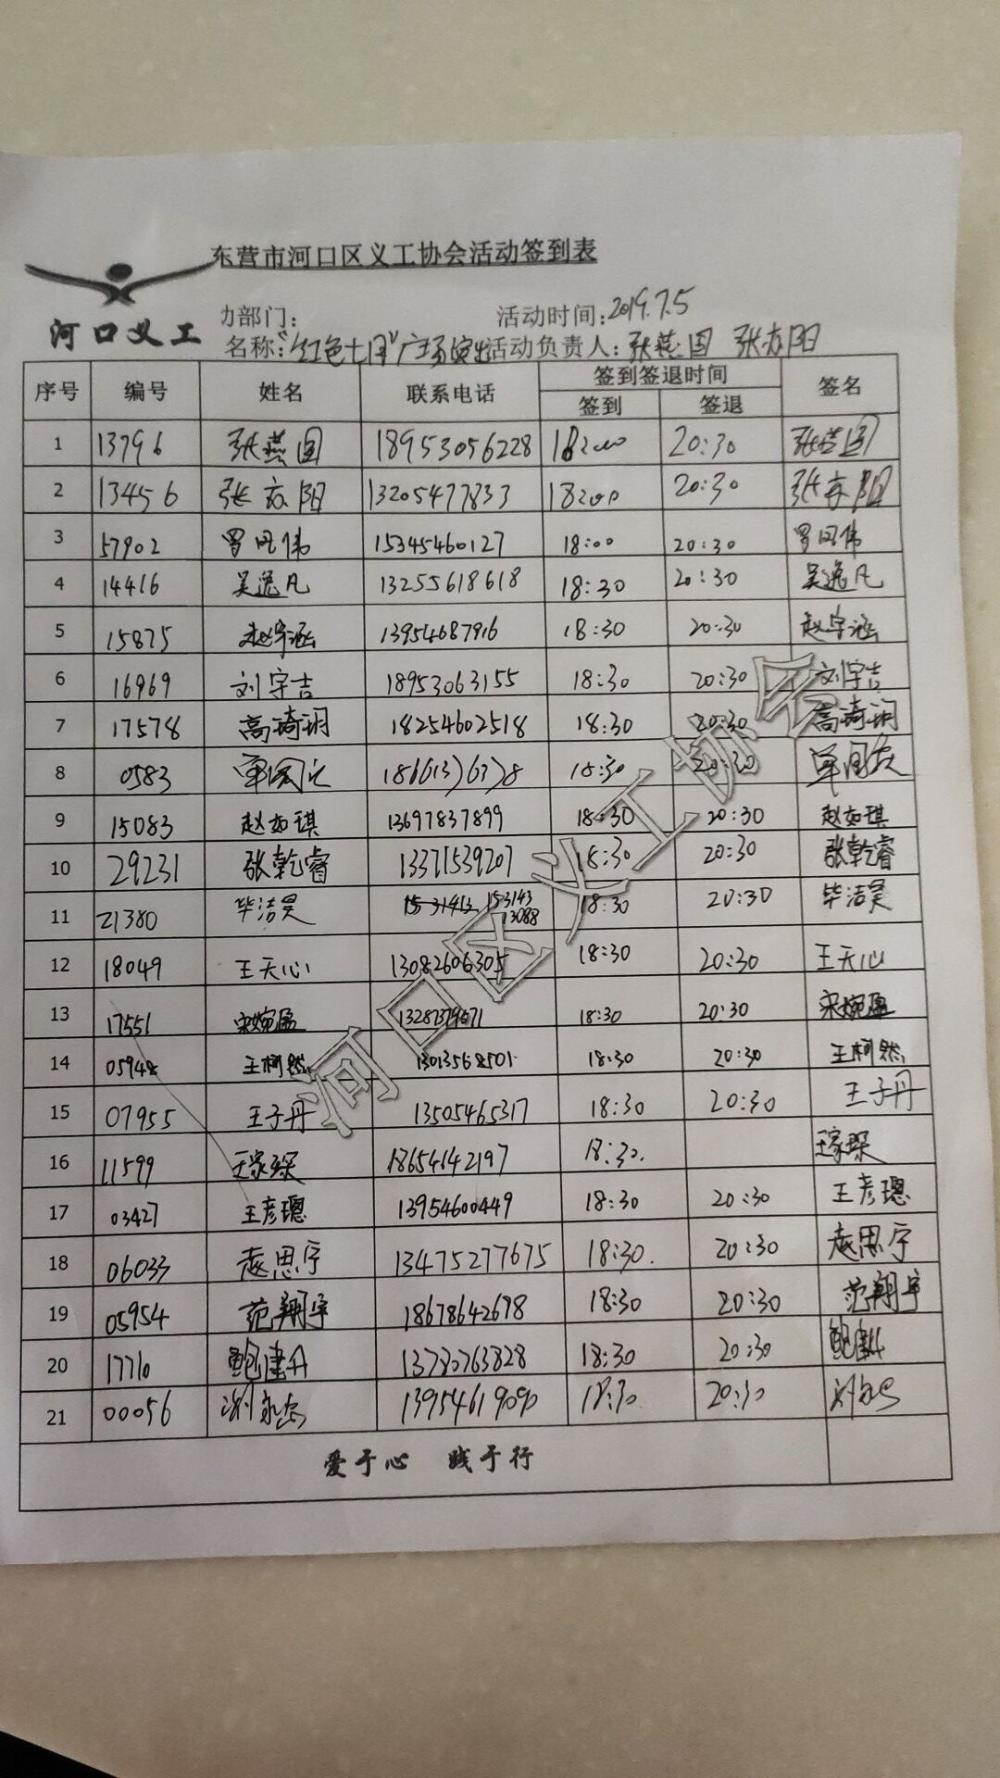 东营市河口区义工协会活动签到表
河口义工
部门： 活动时间：2019.7.5
名称：“红色七月”广场演出 活动负责人：张燕国 张亦阳
序号 编号 姓名 联系电话 签到签退时间 签名
签到 签退
1 13796 张燕国 18953056228 18:00 20:30 张燕国
2 13456 张亦阳 13205477833 18:00 20:30 张亦阳
3 57902 罗伟 15345460127 18:00 20:30 罗伟
4 14416 吴逸凡 13255618618 18:30 20:30 吴逸凡
5 15875 赵宇涵 13954687916 18:30 20:30 赵宇涵
6 16969 刘宇吉 18953063155 18:30 20:30 刘宇吉
7 17578 高琦玥 18254602518 18:30 20:30 高琦玥
8 0583 18:30 20:30
9 15083 赵如琪 13697837899 18:30 20:30 赵如琪
10 29231 张乾睿 13371539207 18:30 20:30 张乾睿
11 21380 毕洁昊 153143 13088 18:30 20:30 毕洁昊
12 18049 王天心 13082606305 18:30 20:30 王天心
13 17551 宋婉盈 18:30 20:30 宋婉盈
14 05948 王柯然 13013568501 18:30 20:30 王柯然
15 07955 王子丹 13505465317 18:30 20:30 王子丹
16 11599 王家琛 18654142197 18:30. 王家琛
17 03427 王彦璁 13954600449 18:30 20:30 王彦璁
18 06033 赵思宇 13475277675 18:30. 20:30 赵思宇
19 05954 范翔宇 18678642678 18:30 20:30 范翔宇
20 17710 鲍建丹 13780763828 18:30 20:30
21 00056 13954619090 18:30 20:30
爱于心 践于行
河口区义工协会